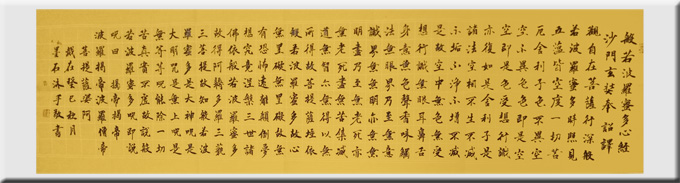 般若波羅蜜多心經
沙門玄奘奉詔譯
觀自在菩薩行深般
若波羅蜜多時照見
五蘊皆空度一切苦
厄舍利子色不異空
空不異色色即是空
空即是色受想行識
亦復如是舍利子是
諸法空相不生不滅
不垢不淨不增不減
是故空中無色無受
想行識無眼耳鼻舌
身意無色聲香味觸
法無眼界乃至無意
識界無無明亦無無
明盡乃至無老死亦
無老死盡無苦集滅
道無智亦無得以無
所得故菩提薩埵依
般若波羅蜜多故心
無罣礙無罣礙故無
有恐怖遠離顛倒夢
想究竟涅槃三世諸
佛依般若波羅蜜多
故得阿耨多羅三藐
三菩提故知般若波
羅蜜多是大神咒是
大明咒是無上咒是
無等等咒能除一切
苦真實不虛故說般
若波羅蜜多咒即說
咒曰 揭帝揭帝
波羅揭帝波羅僧揭帝
菩提薩婆訶
歲在癸巳秋月
墨石沐手敬書